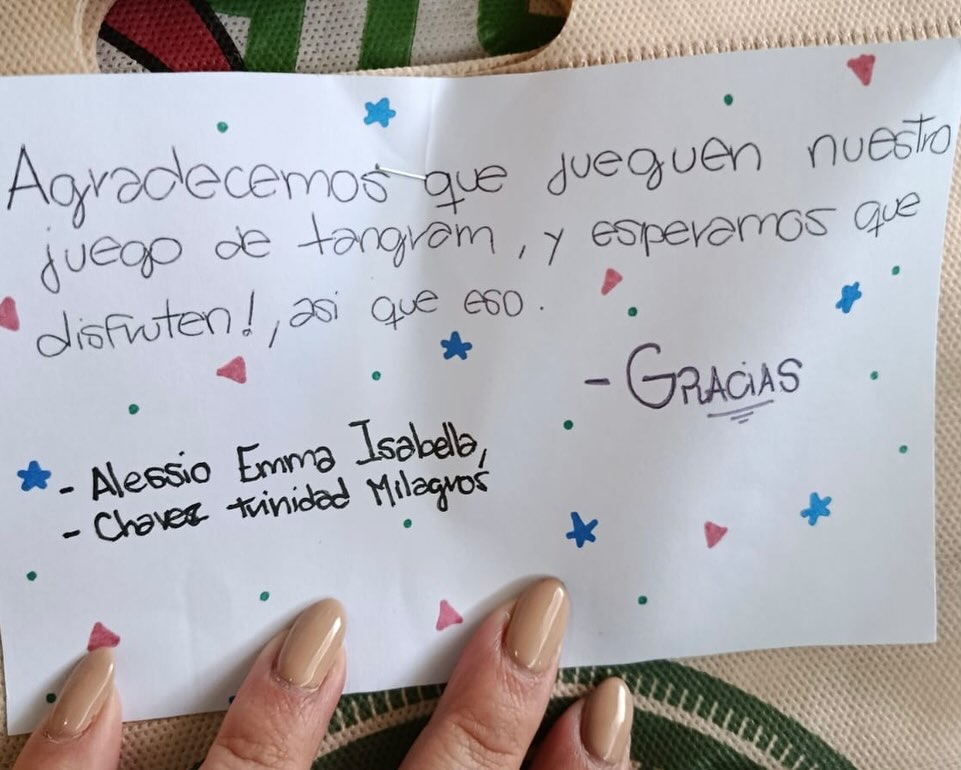 Agradecemos que jueguen nuestro
juego de tangram, y esperamos que
disfruten!, asi que eso.
- GRACiAS
- Alessio Emma Isabella,
- Chavez trinidad Milagros